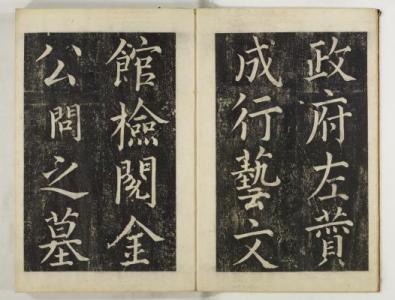 政府左贊
成行藝文
館檢閱金
公問之墓